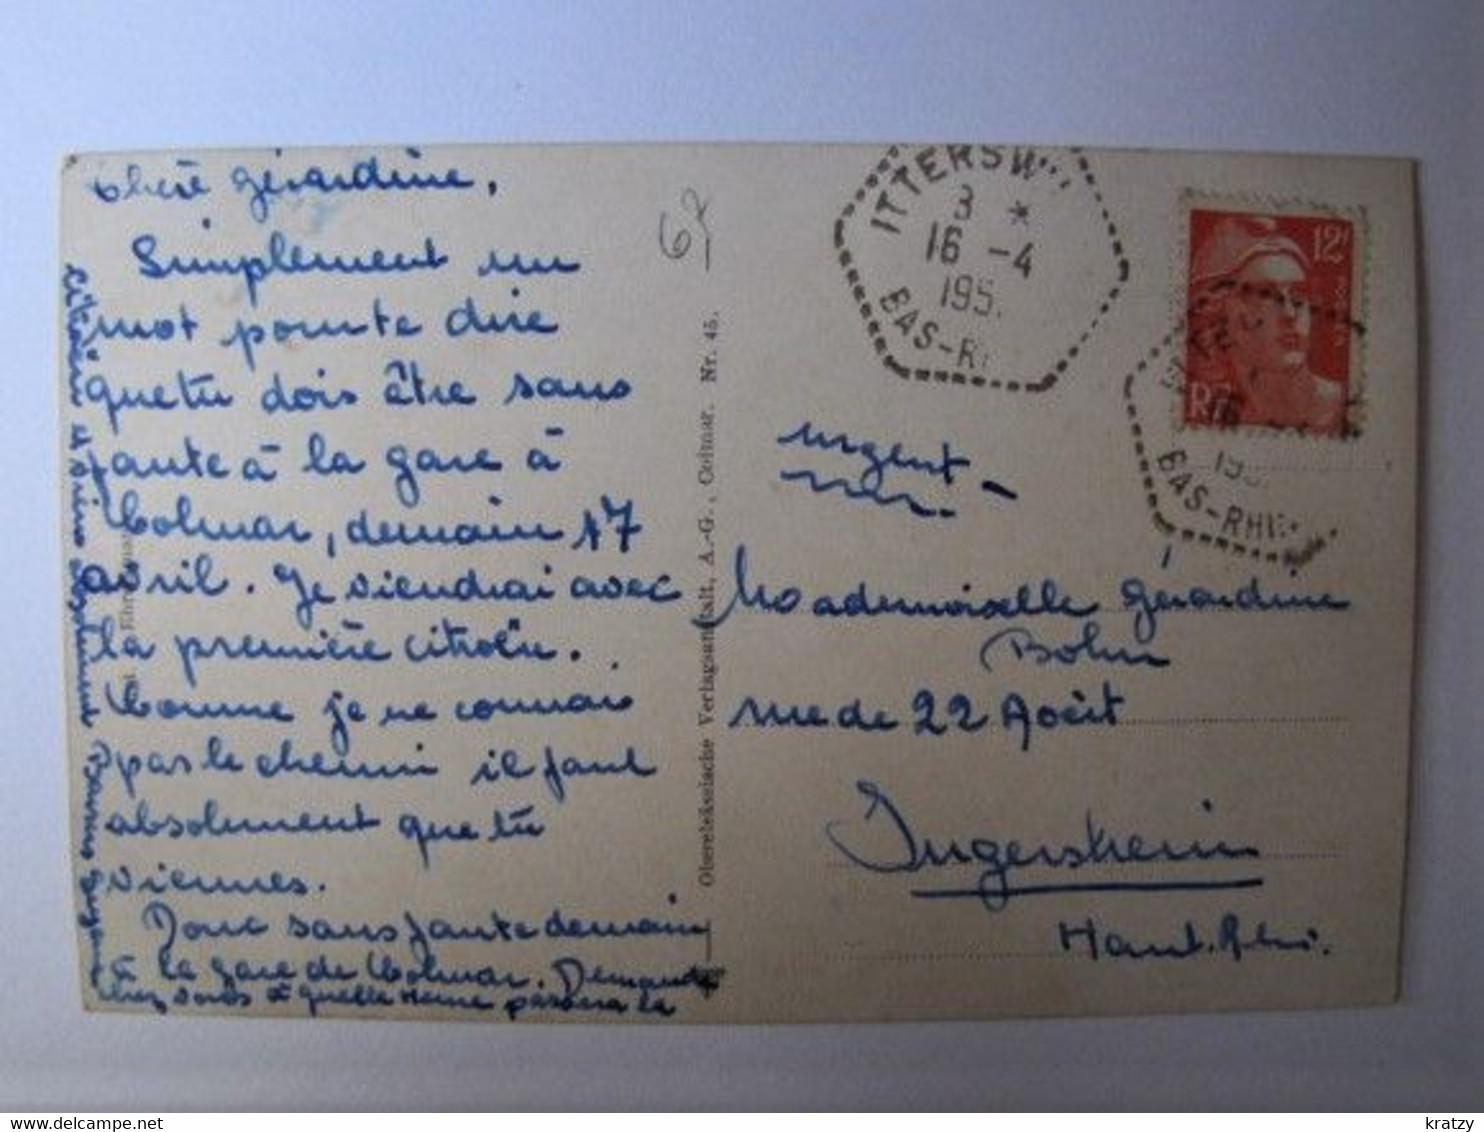 Chère gérardine,
Simplement un
mot pour te dire
que tu dois être sans
faute à la gare à
Colmar, demain 17
avril. Je viendrai avec
la première citroën.
Comme je ne connais
pas le chemin il faut
absolument que tu
viennes.
Donc sans faute demain
à la gare de Colmar. Demande
chez vous à quelle Heure passera la
citroën et viens absolument Baisers
67
Oberelsässische Verlagsanstalt, A.-G., Colmar. Nr. 45.
ITTERSW
3 *
16 -4
195
BAS-RH
12F
RF
16
19
BAS-RHIN
urgent -
Mademoiselle gérardine
Bohn
rue de 22 Août
Ingersheim
Haut. Rhin.
kratzy